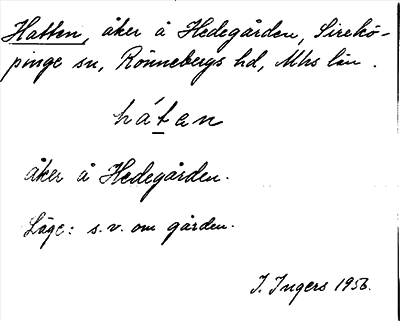 Hatten, åker å Hedegården, Sirekö-
pinge sn, Rönnebergs hd, Mhs län.
hátan
åker å Hedegården.
Läge: s.v. om gården.
I. Ingers 1956.